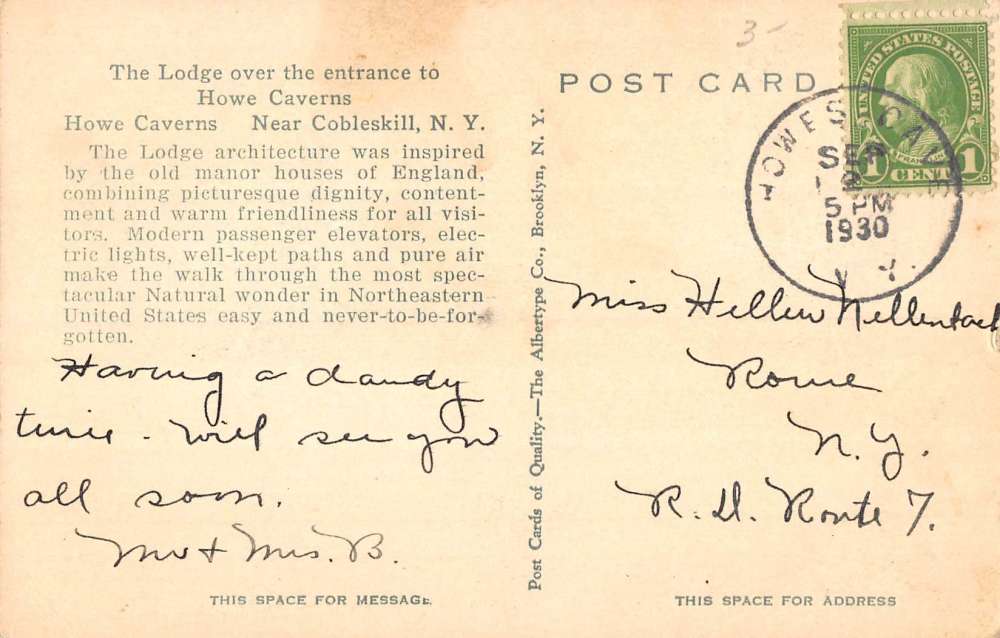 The Lodge over the entrance to
Howe Caverns
Howe Caverns Near Cobleskill, N. Y.
The Lodge architecture was inspired
by the old manor houses of England,
combining picturesque dignity, content-
ment and warm friendliness for all visi-
tors. Modern passenger elevators, elec-
tric lights, well-kept paths and pure air
make the walk through the most spec-
tacular Natural wonder in Northeastern
United States easy and never-to-be-for-
gotten.
Having a dandy
time - will see you
all soon.
Mr & Mrs. B.
THIS SPACE FOR MESSAGE.
Post Cards of Quality.—The Albertype Co., Brooklyn, N. Y.
3-
POST CARD
UNITED STATES POSTAGE
FRANKLIN
1 CENT 1
HOWES CAVE
SEP
2
5 PM
1930
N. Y.
Miss Hellen Nellenback
Rome
N. Y.
R. D. Route 7.
THIS SPACE FOR ADDRESS